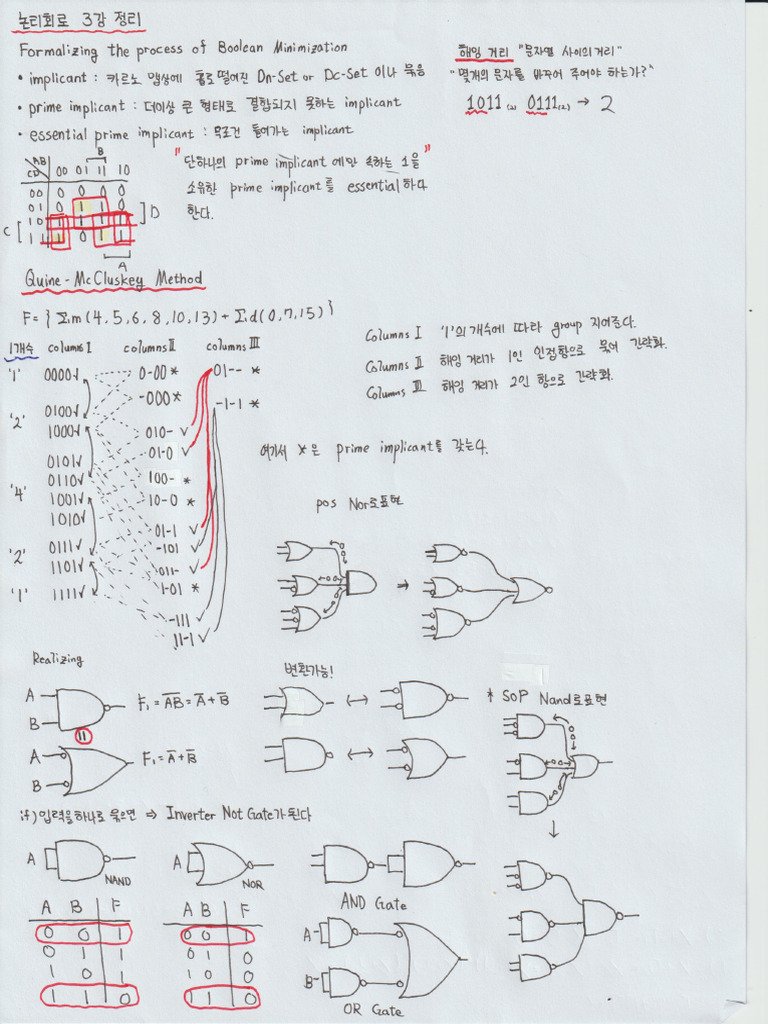 논리회로 3강 정리
Formalizing the process of Boolean Minimization
• implicant : 카르노 맵상에 홀로 떨어진 On-Set or Dc-Set 이나 묶음
• prime implicant : 더이상 큰 형태로 결합되지 못하는 implicant
• essential prime implicant : 무조건 들어가는 implicant
해밍 거리 "문자열 사이의 거리"
"몇개의 문자를 바꾸어 주어야 하는가?"
1011(2) 0111(2) → 2
B
AB
CD
00 01 11 10
00 0 0 0 0
01 0 1 1 0
10 1 1 1 1
11 1 0 1 1
C
D
A
"단하나의 prime implicant 에만 속하는 1을"
소유한 prime implicant를 essential 하다
한다.
Quine-McCluskey Method
F = { Σm(4,5,6,8,10,13) + Σd(0,7,15) }
1개수 columns I columns II columns III
'1' 0000√ 0-00* 01-- *
0100√ -000* -1-1 *
'2' 1000√ 010- √
0101√ 01-0 √
0110√ 100- *
'4' 1001√ 10-0 *
1010√ 01-1 √
0111√ -101 √
'2' 1101√ 011- √
'1' 1111√ 1-01 *
-111 √
11-1 √
Columns I '1'의 개수에 따라 group 지어준다.
Columns II 해밍 거리가 1인 인접항으로 묶어 간략화.
Columns III 해밍 거리가 2인 항으로 간략화.
여기서 *은 prime implicant를 갖는다.
pos Nor로표현
Realizing
A
B
F₁ = \overline{AB} = \overline{A} + \overline{B}
=
A
B
F₁ = \overline{A} + \overline{B}
변환가능!
* SOP Nand로표현
if) 입력을 하나로 묶으면 ⇒ Inverter Not Gate가 된다
A
NAND
A
NOR
AND Gate
A B F
0 0 1
0 1 1
1 0 1
1 1 0
A B F
0 0 1
0 1 0
1 0 0
1 1 0
A
B
OR Gate